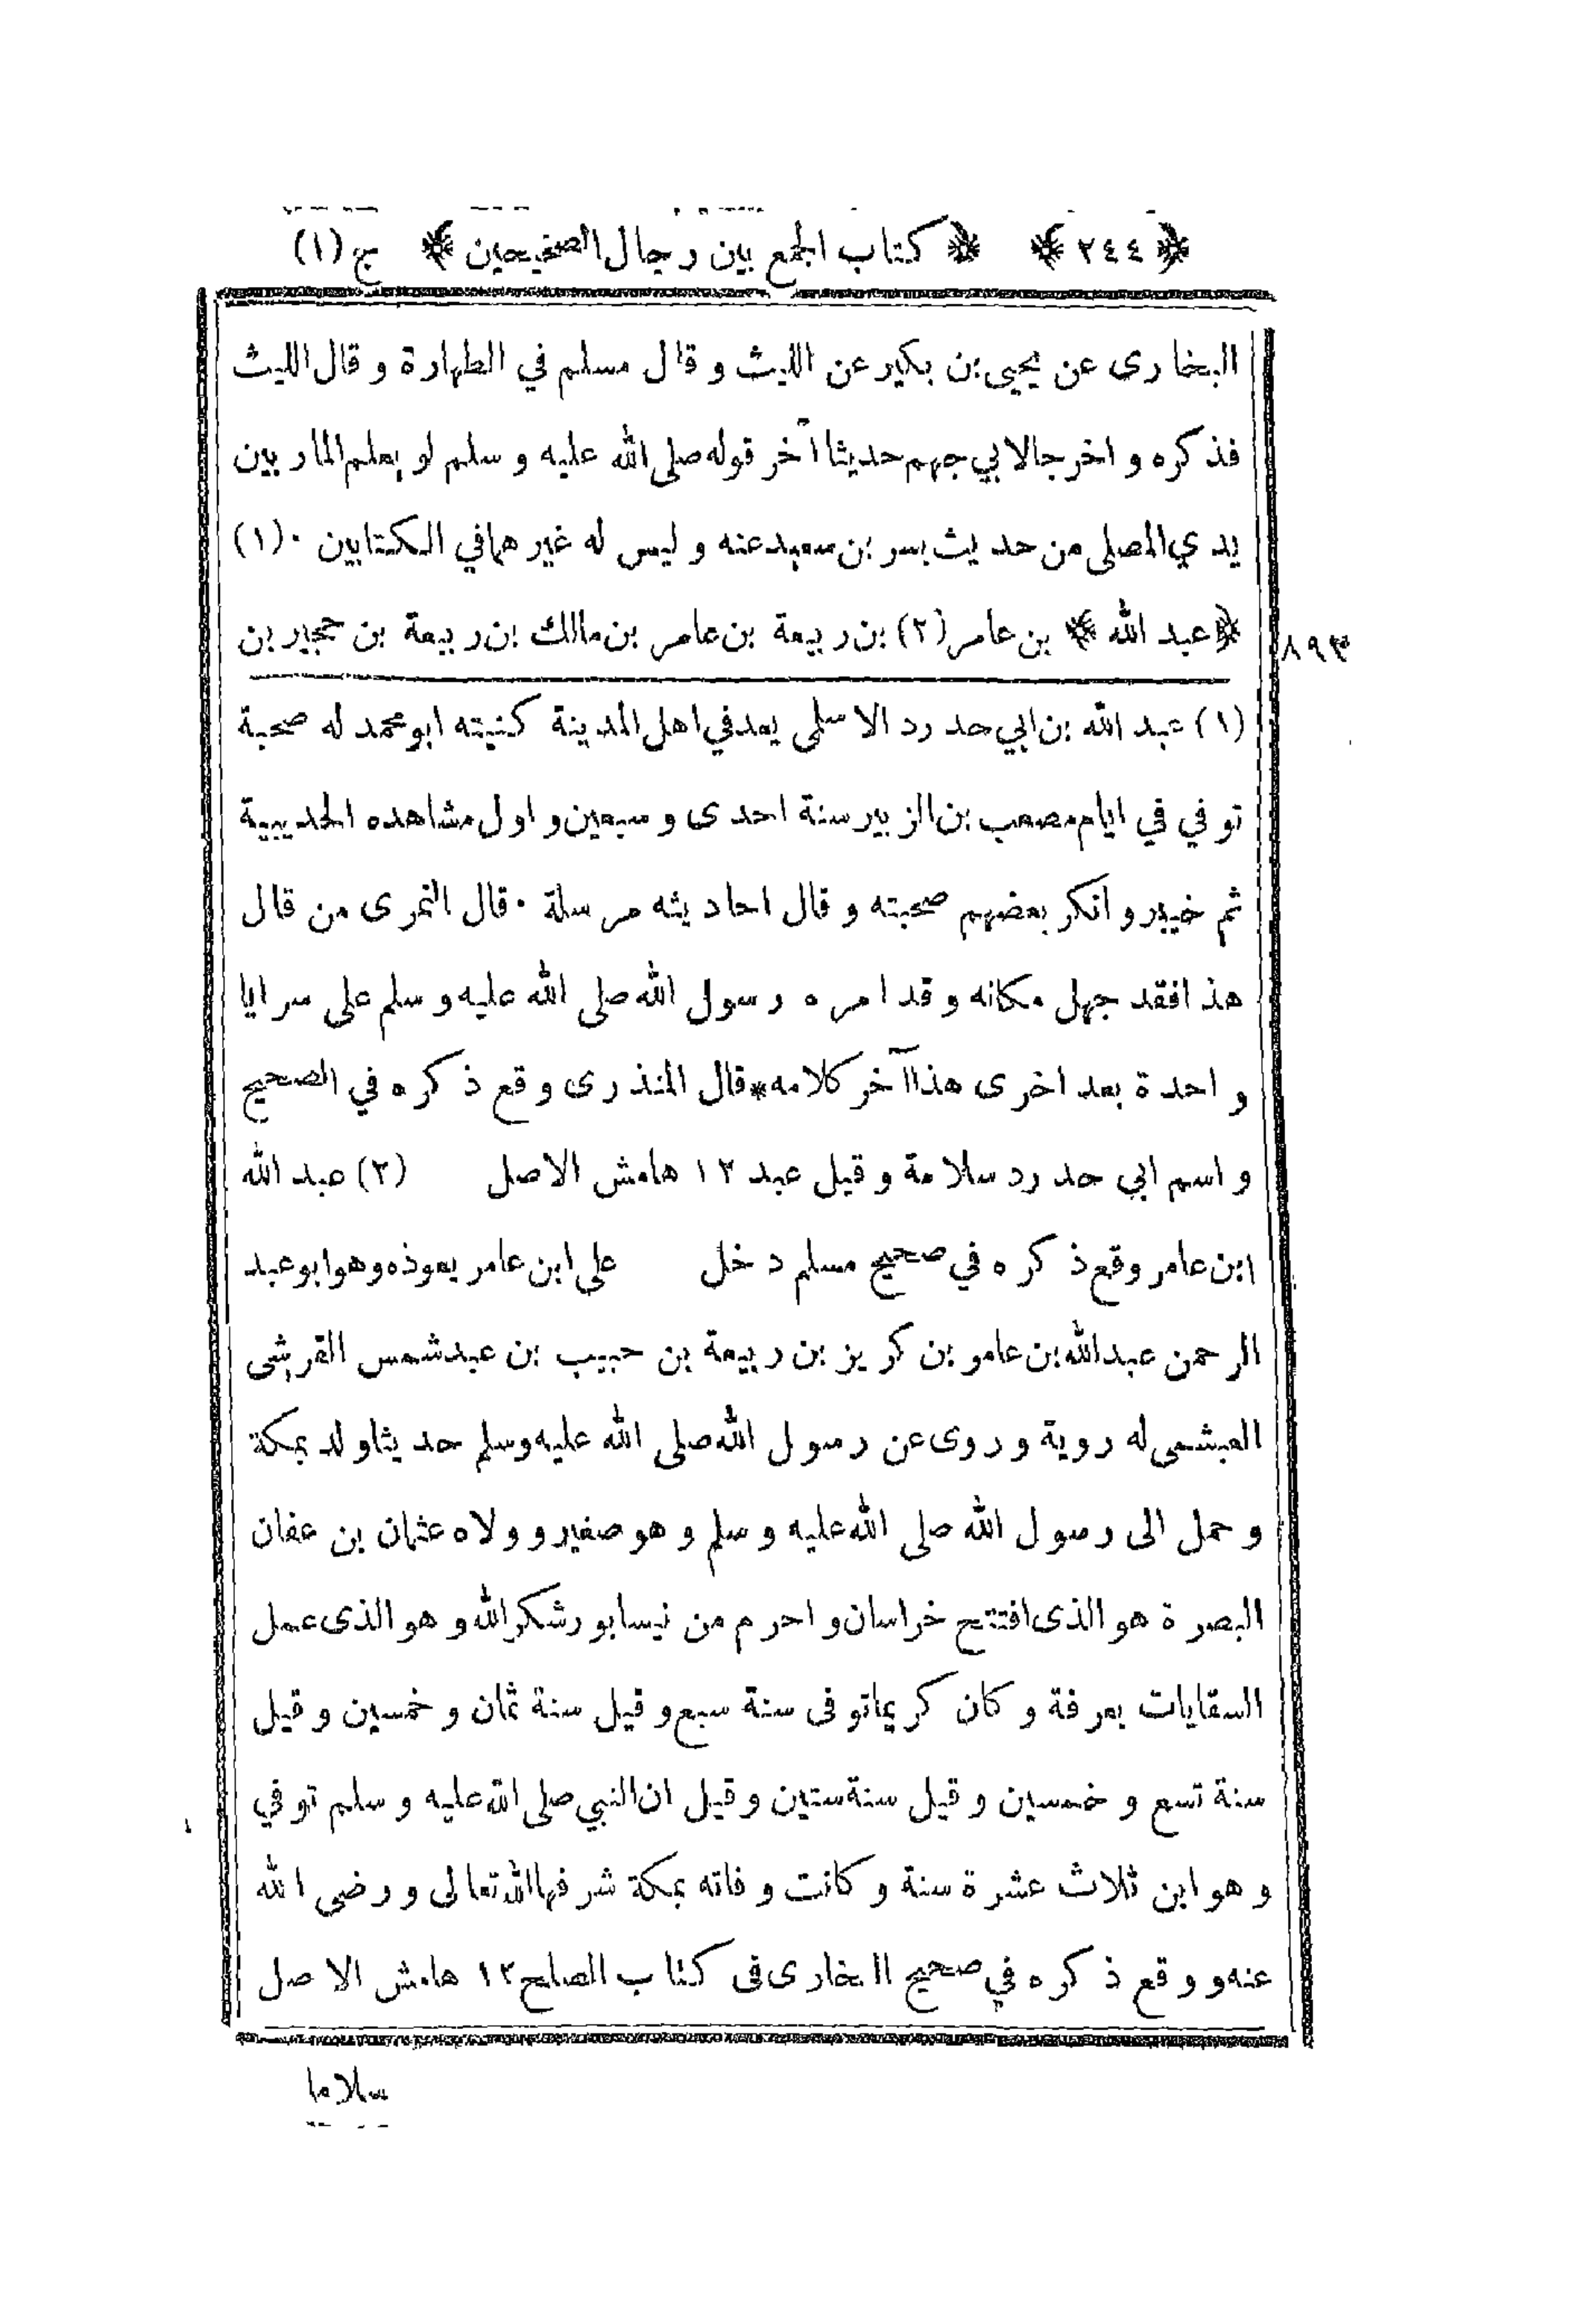 ﴿ ٢٤٤ ﴾ ﴿ كتاب الجمع بين رجال الصحيحين ﴾ ج (١)
البخارى عن يحيى بن بكير عن الليث و قال مسلم في الطهارة و قال الليث
فذكره و اخرجا لابي جهم حديثا آخر قوله صلى الله عليه و سلم لو يعلم المار بين
يدي المصلى من حديث بسر بن سعيد عنه و ليس له غير هما في الكتابين ٠ (١)
﴿ عبد الله ﴾ بن عامر (٢) بن ربيعة بن عامر بن مالك بن ربيعة بن حجير بن
٨٩٣
(١) عبد الله بن ابي حدرد الاسلمى يعد في اهل المدينة كنيته ابو محمد له صحبة
توفي في ايام مصعب بن الزبير سنة احدى و سبعين و اول مشاهده الحديبية
ثم خيبر و انكر بعضهم صحبته و قال احاديثه مرسلة ٠ قال النمرى من قال
هذا فقد جهل مكانه و قد امره رسول الله صلى الله عليه و سلم على سرايا
واحدة بعد اخرى هذا آخر كلامه * قال المنذرى وقع ذكره في الصحيح
و اسم ابي حدرد سلامة و قيل عبد ١٢ هامش الاصل (٢) عبد الله
ابن عامر وقع ذكره في صحيح مسلم دخل على ابن عامر يعوذه وهو ابو عبد
الرحمن عبد الله بن عامو بن كريز بن ربيعة بن حبيب بن عبد شمس القرشى
العبشمى له روية و روى عن رسول الله صلى الله عليه وسلم حديثا ولد بمكة
و حمل الى رسول الله صلى الله عليه و سلم و هو صغير و ولاه عثمان بن عفان
البصرة هو الذى افتتح خراسان و احرم من نيسابور شكر الله و هو الذى عمل
السقايات بعرفة و كان كريما توفى سنة سبع و قيل سنة ثمان و خمسين و قيل
سنة تسع و خمسين و قيل سنة ستين و قيل ان النبي صلى الله عليه و سلم توفي
و هو ابن ثلاث عشرة سنة و كانت وفاته بمكة شرفها الله تعالى و رضى الله
عنه و وقع ذكره في صحيح البخارى فى كتاب الصلح ١٢ هامش الاصل
سلاما